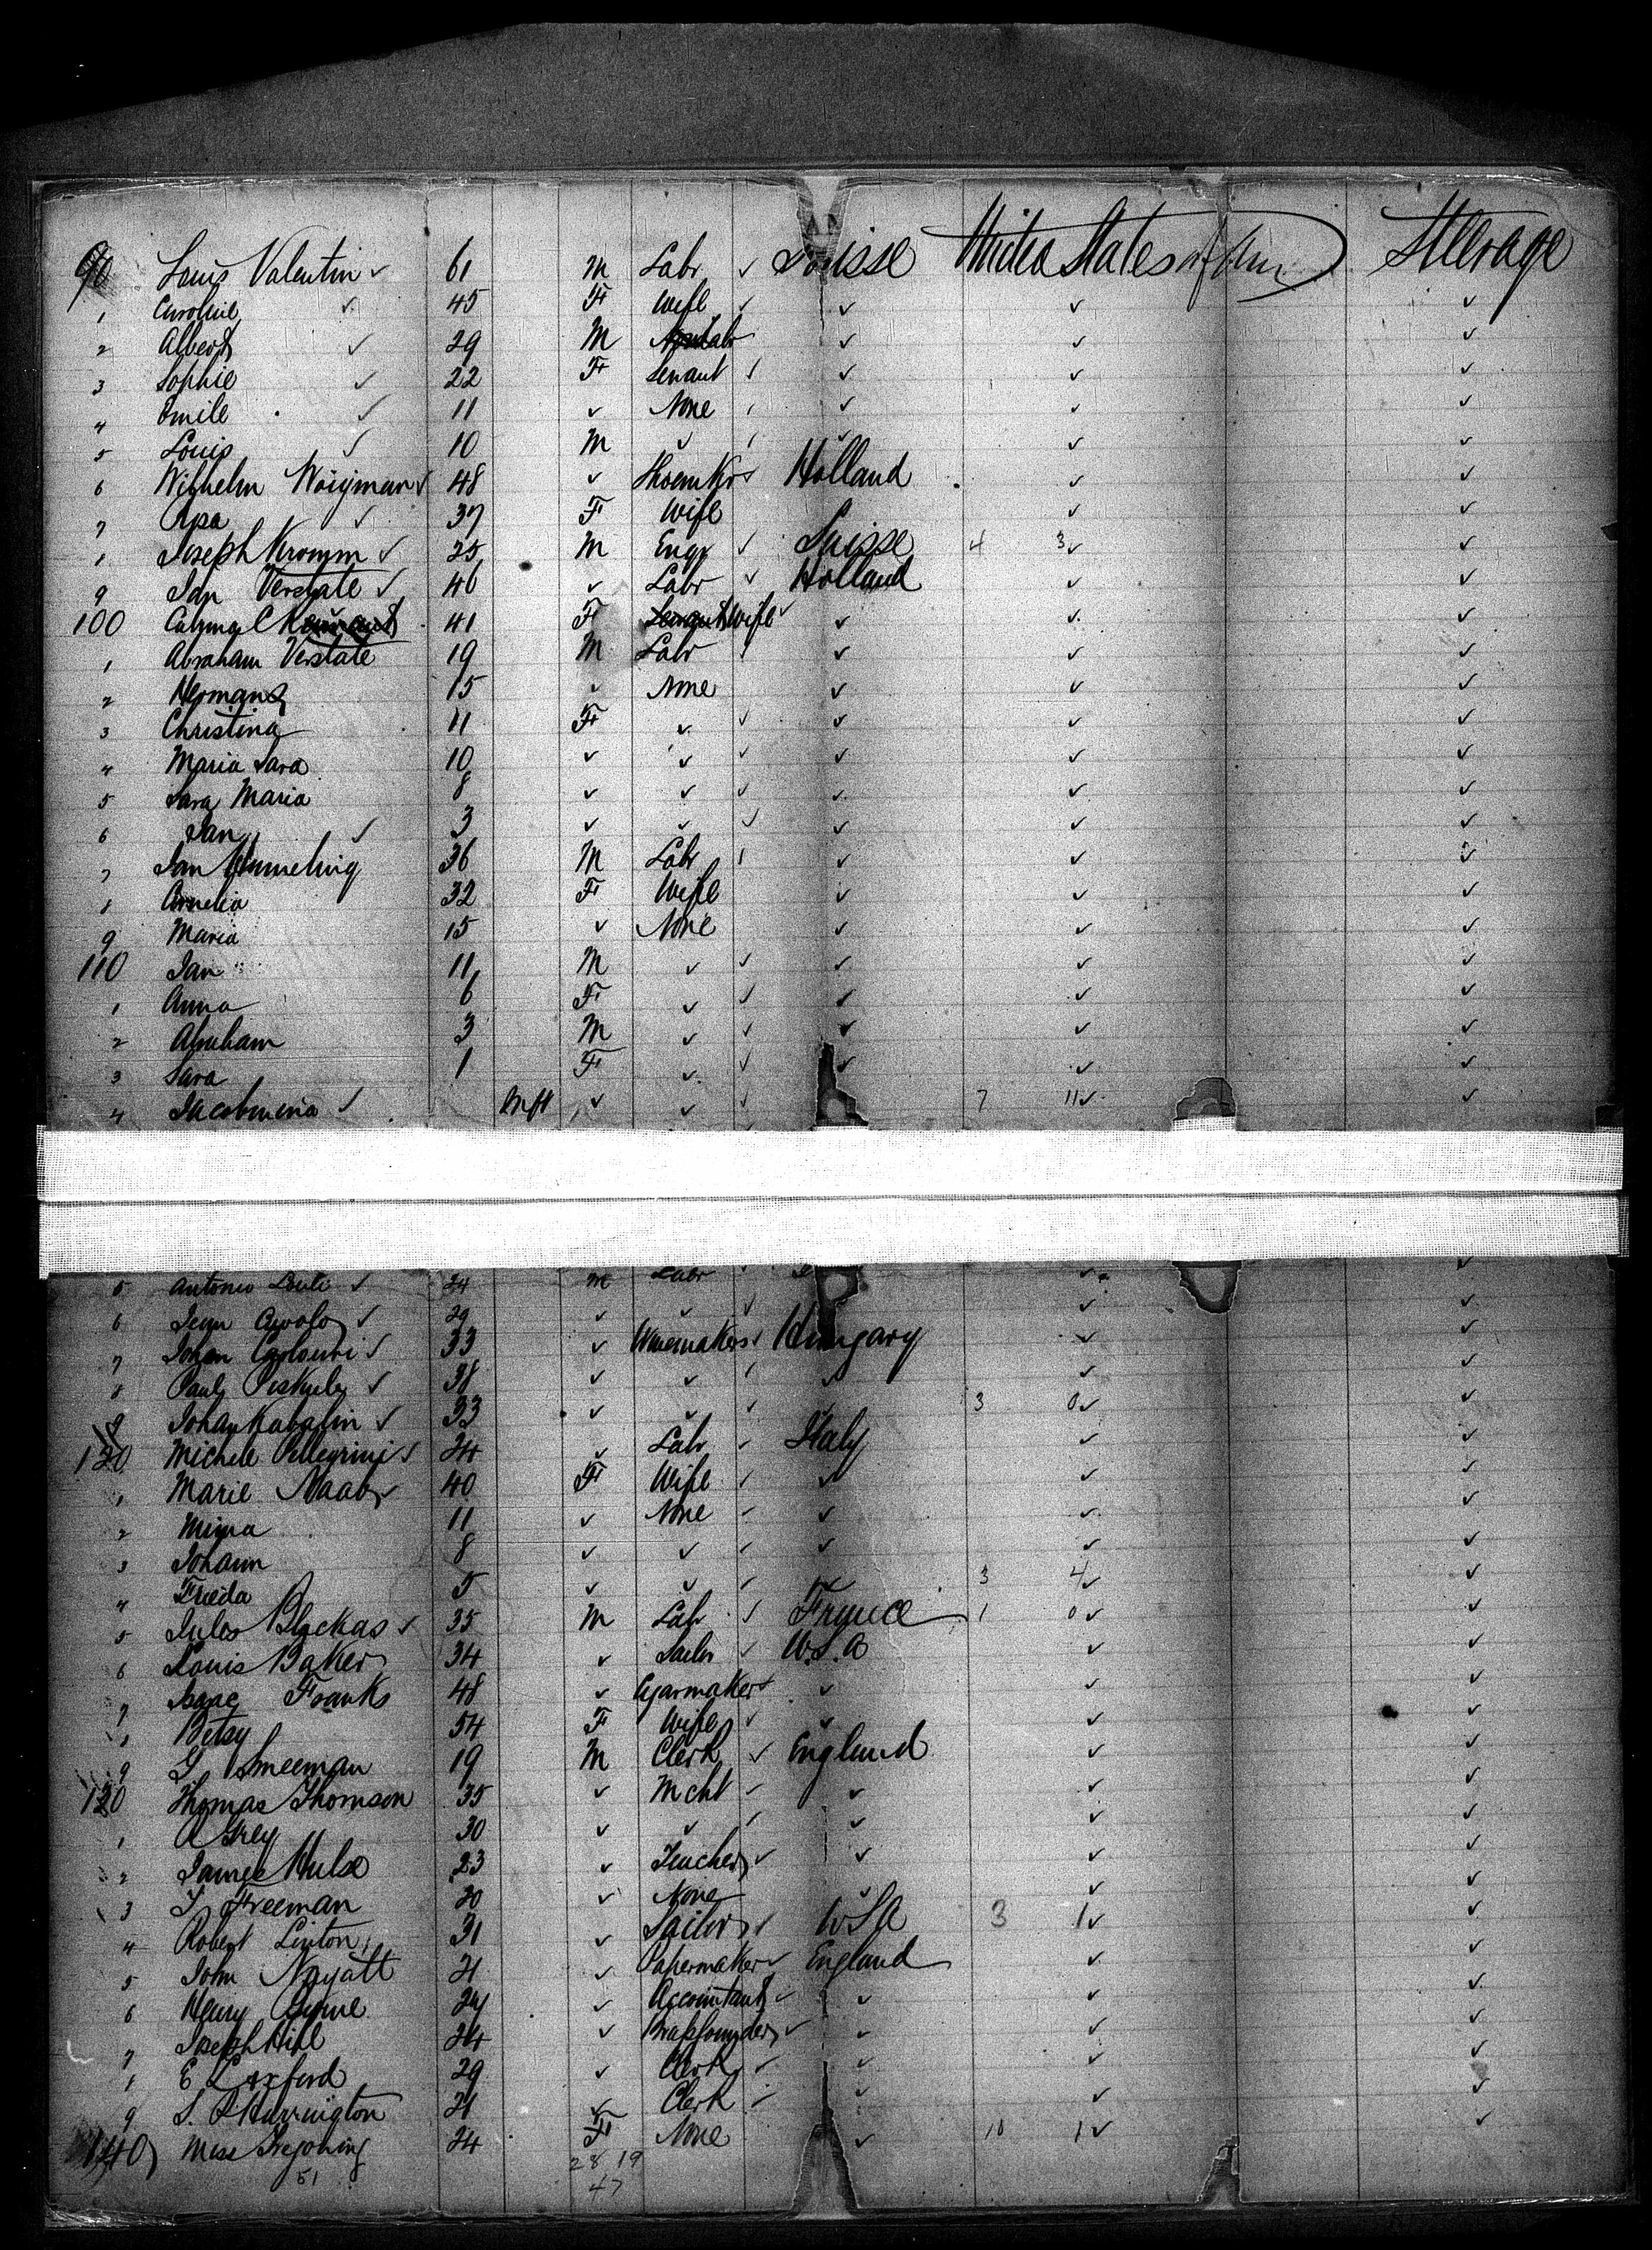 90 Louis Valentin ✓ 61 M Labr ✓ Suisse United States of Am Steerage
1 Caroline ✓ 45 F Wife ✓ ✓ ✓ ✓
2 Albert ✓ 29 M Labr ✓ ✓ ✓
3 Sophie ✓ 22 F Servant ✓ ✓ ✓ ✓
4 Emile ✓ 11 ✓ None ✓ ✓ ✓
5 Louis ✓ 10 M ✓ ✓ ✓ ✓
6 Wilhelm ✓ 48 ✓ Shoemkr ✓ Holland ✓ ✓
7 37 F Wife ✓ ✓
8 Joseph Kromm ✓ 25 M Engr ✓ Suisse 4 3 ✓ ✓
9 Jan Verstate ✓ 46 ✓ Labr ✓ Holland ✓ ✓
100 41 F Servant Wife ✓ ✓ ✓ ✓
1 Abraham Verstate 19 M Labr ✓ ✓ ✓
2 Herman 15 ✓ None ✓ ✓ ✓
3 Christina 11 F ✓ ✓ ✓ ✓ ✓
4 Maria Sara 10 ✓ ✓ ✓ ✓ ✓ ✓
5 Sara Maria 8 ✓ ✓ ✓ ✓ ✓ ✓
6 Jan ✓ 3 ✓ ✓ ✓ ✓ ✓ ✓
7 Jan 36 M Labr ✓ ✓ ✓
8 Cornelia 32 F Wife ✓ ✓ ✓
9 Maria 15 ✓ None ✓ ✓ ✓
110 Jan 11 M ✓ ✓ ✓ ✓ ✓
1 Anna 6 F ✓ ✓ ✓ ✓ ✓
2 Abraham 3 M ✓ ✓ ✓ ✓ ✓
3 Sara 1 F ✓ ✓ ✓ ✓ ✓
4 Jacobmina ✓ Inft ✓ ✓ ✓ 7 11 ✓ ✓
5 Antonio ✓ 24 M Labr ✓ ✓ ✓
6 Jean ✓ 29 ✓ ✓ ✓ ✓ ✓
7 Johan ✓ 33 ✓ Wiremakers ✓ Hungary ✓ ✓
8 Paul ✓ 38 ✓ ✓ ✓ ✓ ✓ ✓
9 Johan Kabalin ✓ 33 ✓ ✓ ✓ ✓ 3 0 ✓ ✓
120 Michele Pellegrini ✓ 24 ✓ Labr ✓ Italy ✓ ✓
1 Marie Naab ✓ 40 F Wife ✓ ✓ ✓ ✓
2 Mina 11 ✓ None ✓ ✓ ✓ ✓
3 Johann 8 ✓ ✓ ✓ ✓ ✓ ✓
4 Frieda 5 ✓ ✓ ✓ ✓ 3 4 ✓ ✓
5 Jules Blackas ✓ 35 M Labr ✓ France 1 0 ✓ ✓
6 Louis Baker 34 ✓ Sailor ✓ U.S.A ✓ ✓
7 Isaac Franks 48 ✓ Cigarmaker ✓ ✓ ✓ ✓
8 Betsy 54 F Wife ✓ ✓ ✓ ✓
9 G Smeeman 19 M Clerk ✓ England ✓ ✓
130 Thomas Thomson 35 ✓ Mcht ✓ ✓ ✓ ✓
1 A Grey 30 ✓ ✓ ✓ ✓ ✓ ✓
2 James Hulse 23 ✓ Teacher ✓ ✓ ✓ ✓
3 T Freeman 20 ✓ None ✓ ✓ ✓
4 Robert Linton 31 ✓ Sailor ✓ USA 3 1 ✓ ✓
5 John 21 ✓ Papermaker ✓ England ✓ ✓
6 Henry Byrne 24 ✓ Accountant ✓ ✓ ✓ ✓
7 Joseph Hill 24 ✓ Brassfounder ✓ ✓ ✓ ✓
8 E Laxford 29 ✓ Clerk ✓ ✓ ✓ ✓
9 S. Harrington 21 ✓ Clerk ✓ ✓ ✓ ✓
140 Miss 24 F None ✓ 10 1 ✓ ✓
51 28 19
47